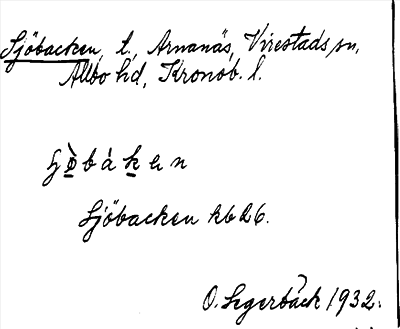 Sjöbacken, t., Arnanäs, Virestads sn,
Allbo hd, Kronob. l.
Sjöbacken kb 26.
O. Segerbäck 1932.